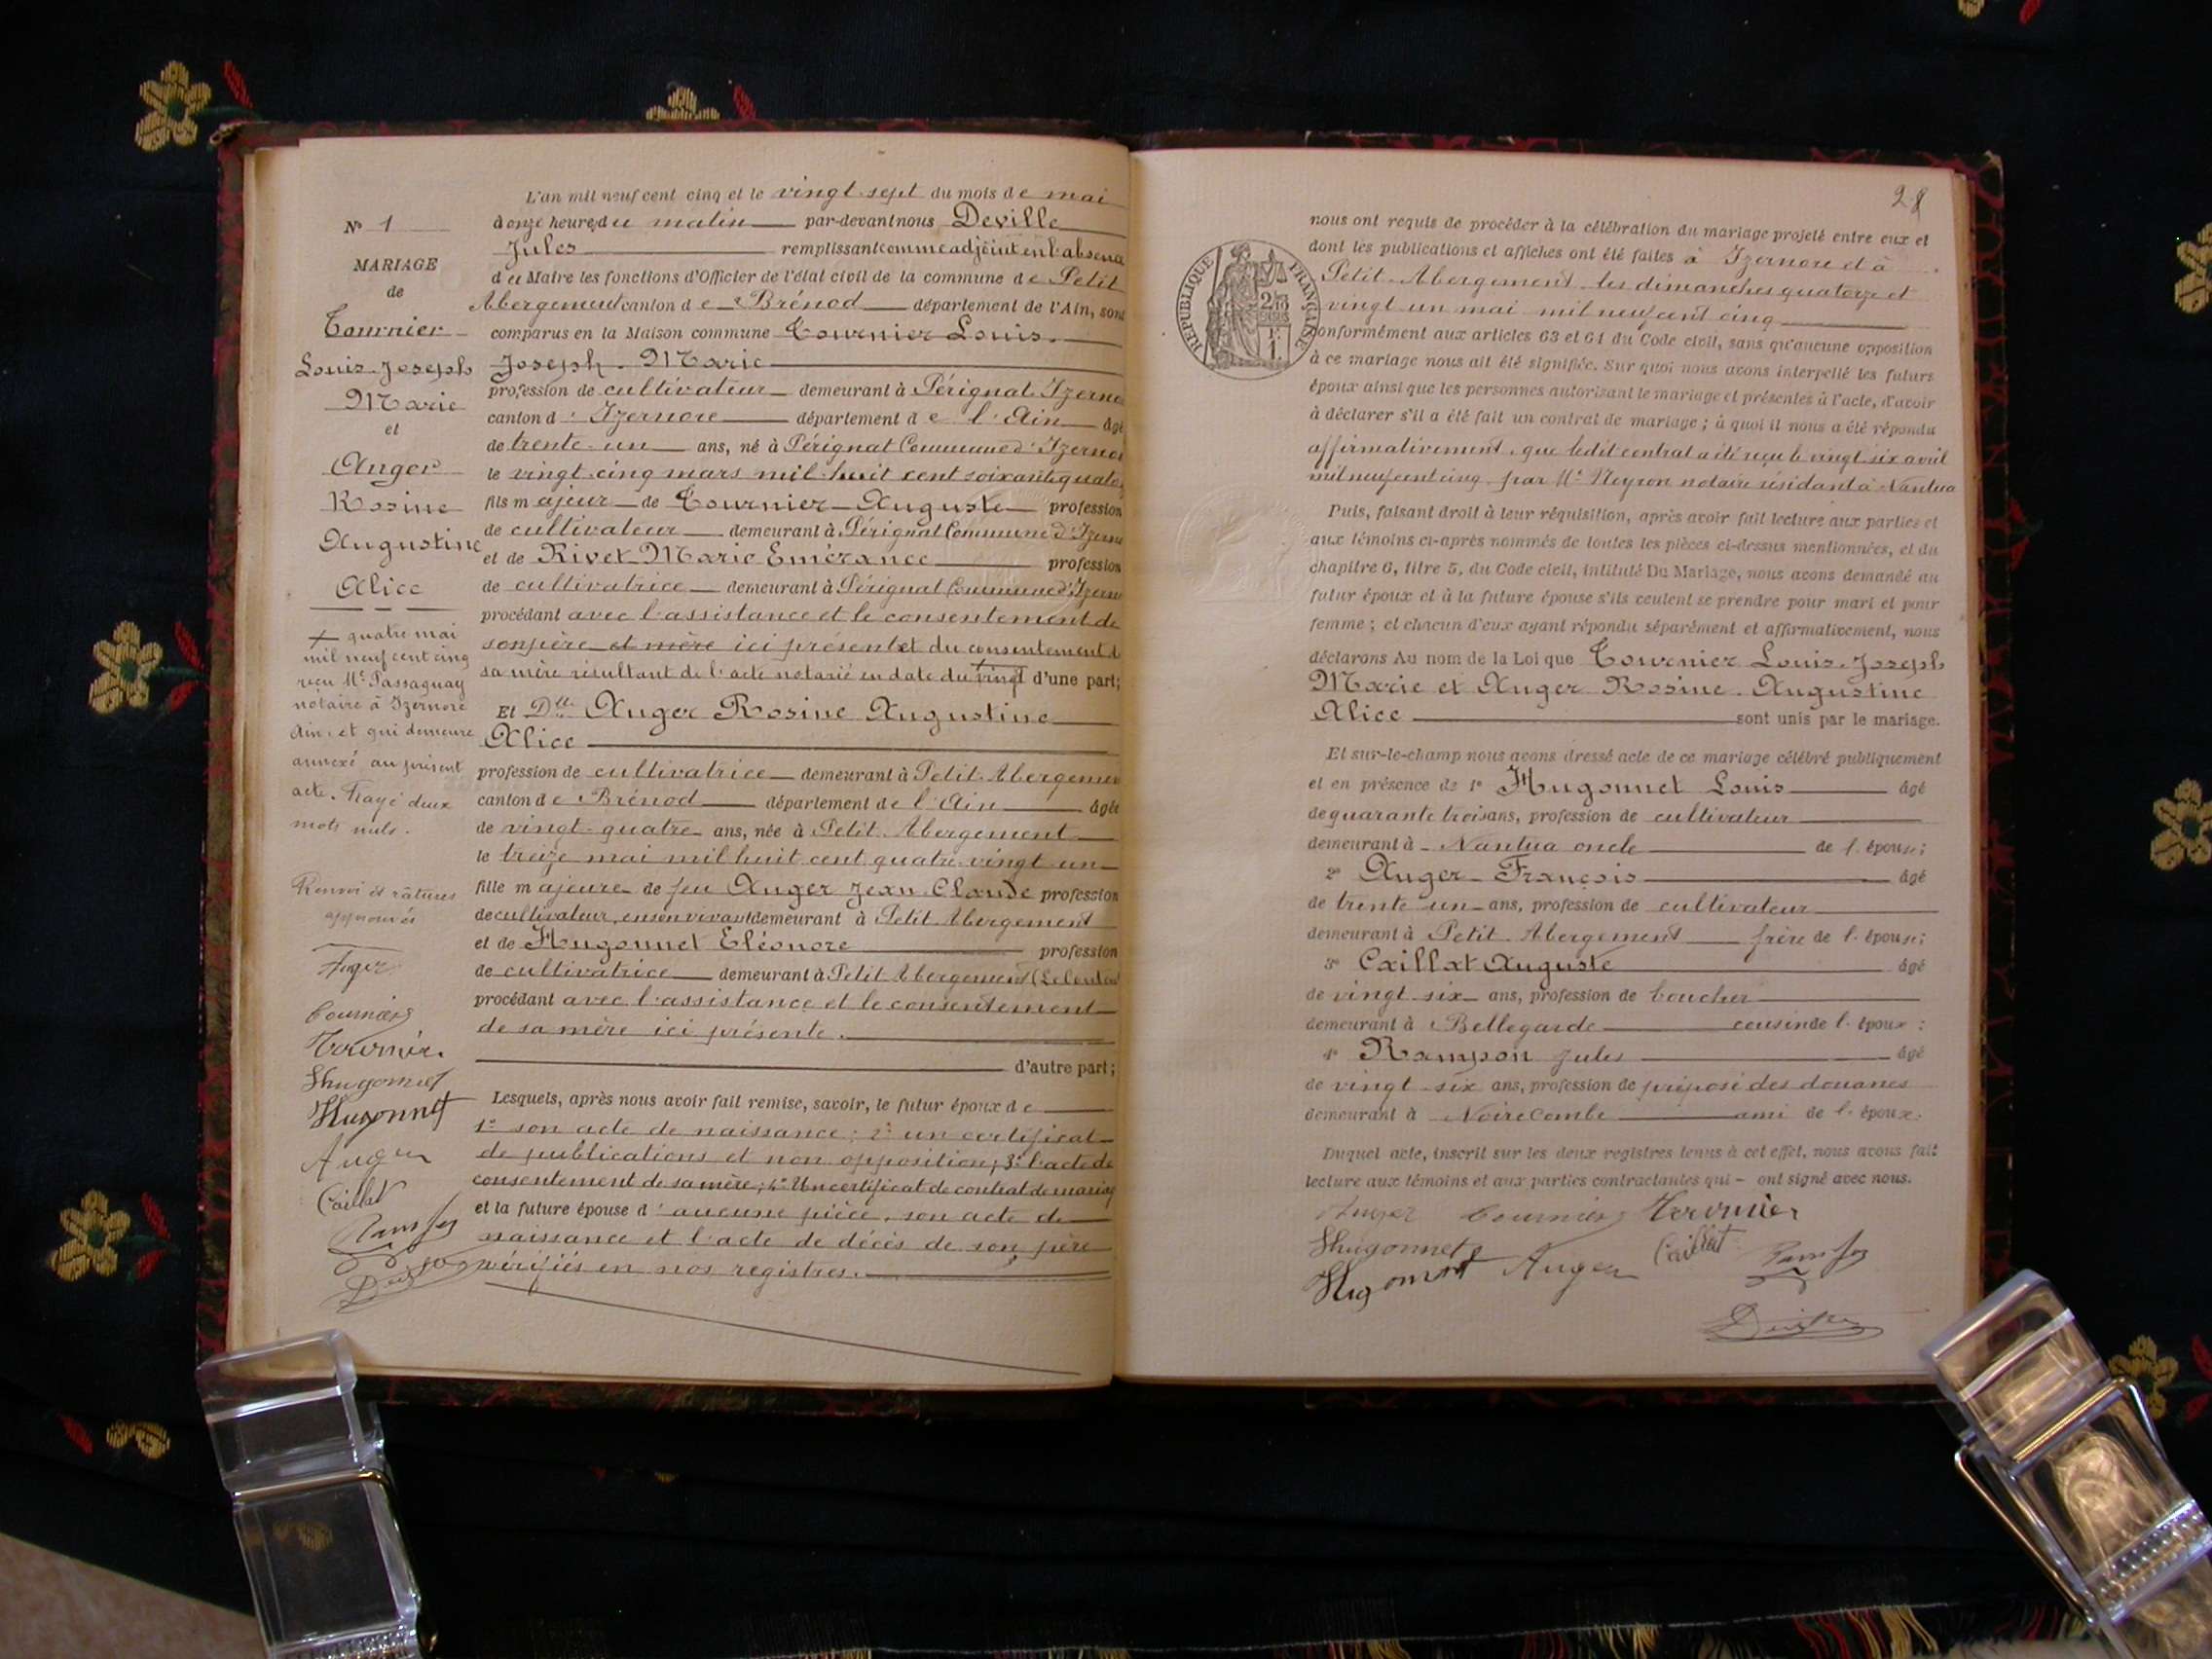 N° 1
MARIAGE
de
Tournier
Louis-Joseph
Marie
et
Auger
Rosine
Augustine
Alice
+ quatre mai
mil neuf cent cinq
reçu Me Passaquay
notaire à Izernore
Ain, et qui demeure
annexé au présent
acte. Rayé deux
mots nuls.
Renvoi et ratures
approuvés
Auger
Tournier
Tournier
Hugonnet
Hugonnet
Auger
Caillat
L'an mil neuf cent cinq et le vingt-sept du mois de mai
à onze heures du matin par-devant nous Deville
Jules remplissant comme adjoint en l'absence
du Maire les fonctions d'Officier de l'état civil de la commune de Petit
Abergement canton de Brénod département de l'Ain, sont
comparus en la Maison commune Tournier Louis-
Joseph-Marie
profession de cultivateur demeurant à Pérignat Izernore
canton d'Izernore département de l'Ain âgé
de trente-un ans, né à Pérignat Commune d'Izernore
le vingt-cinq mars mil huit cent soixante quatorze
fils majeur de Tournier Auguste profession
de cultivateur demeurant à Pérignat Commune d'Izernore
et de Rivet Marie Emérance profession
de cultivatrice demeurant à Pérignat Commune d'Izernore
procédant avec l'assistance et le consentement de
son père et mère ici présent et du consentement de
sa mère résultant de l'acte notarié en date du vingt d'une part;
Et Dlle Auger Rosine Augustine
Alice
profession de cultivatrice demeurant à Petit-Abergement
canton de Brénod département de l'Ain âgée
de vingt-quatre ans, née à Petit-Abergement
le treize mai mil huit cent quatre-vingt-un
fille majeure de feu Auger Jean-Claude profession
de cultivateur en son vivant demeurant à Petit-Abergement
et de Hugonnet Eléonore profession
de cultivatrice demeurant à Petit-Abergement
procédant avec l'assistance et le consentement
de sa mère ici présente.
d'autre part;
Lesquels, après nous avoir fait remise, savoir, le futur époux de
1° son acte de naissance; 2° un certificat
de publications et non opposition; 3° l'acte de
consentement de sa mère; 4° Un certificat de contrat de mariage
et la future épouse d'aucune pièce, son acte de
naissance et l'acte de décès de son père
vérifiés en nos registres.
28
REPUBLIQUE FRANÇAISE
nous ont requis de procéder à la célébration du mariage projeté entre eux et
dont les publications et affiches ont été faites à Izernore et à
Petit-Abergement les dimanches quatorze et
vingt un mai mil neuf cent cinq
conformément aux articles 63 et 64 du Code civil, sans qu'aucune opposition
à ce mariage nous ait été signifiée. Sur quoi nous avons interpellé les futurs
époux ainsi que les personnes autorisant le mariage et présentes à l'acte, d'avoir
à déclarer s'il a été fait un contrat de mariage; à quoi il nous a été répondu
affirmativement, que ledit contrat a été reçu le vingt six avril
mil neuf cent cinq par Me Neyron notaire résidant à Nantua
Puis, faisant droit à leur réquisition, après avoir fait lecture aux parties et
aux témoins ci-après nommés de toutes les pièces ci-dessus mentionnées, et du
chapitre 6, titre 5, du Code civil, intitulé Du Mariage, nous avons demandé au
futur époux et à la future épouse s'ils veulent se prendre pour mari et pour
femme; et chacun d'eux ayant répondu séparément et affirmativement, nous
déclarons Au nom de la Loi que Tournier Louis-Joseph
Marie et Auger Rosine-Augustine
Alice sont unis par le mariage.
Et sur-le-champ nous avons dressé acte de ce mariage célébré publiquement
et en présence de 1° Hugonnet Louis âgé
de quarante trois ans, profession de cultivateur
demeurant à Nantua oncle de l'épouse;
2° Auger François âgé
de trente un ans, profession de cultivateur
demeurant à Petit-Abergement frère de l'épouse;
3° Caillat Auguste âgé
de vingt-six ans, profession de boucher
demeurant à Bellegarde cousin de l'époux;
4° Rampon Jules âgé
de vingt-six ans, profession de préposé des douanes
demeurant à Noirecombe ami de l'époux.
Duquel acte, inscrit sur les deux registres tenus à cet effet, nous avons fait
lecture aux témoins et aux parties contractantes qui ont signé avec nous.
Auger Tournier Tournier
Hugonnet Caillat
Hugonnet Auger